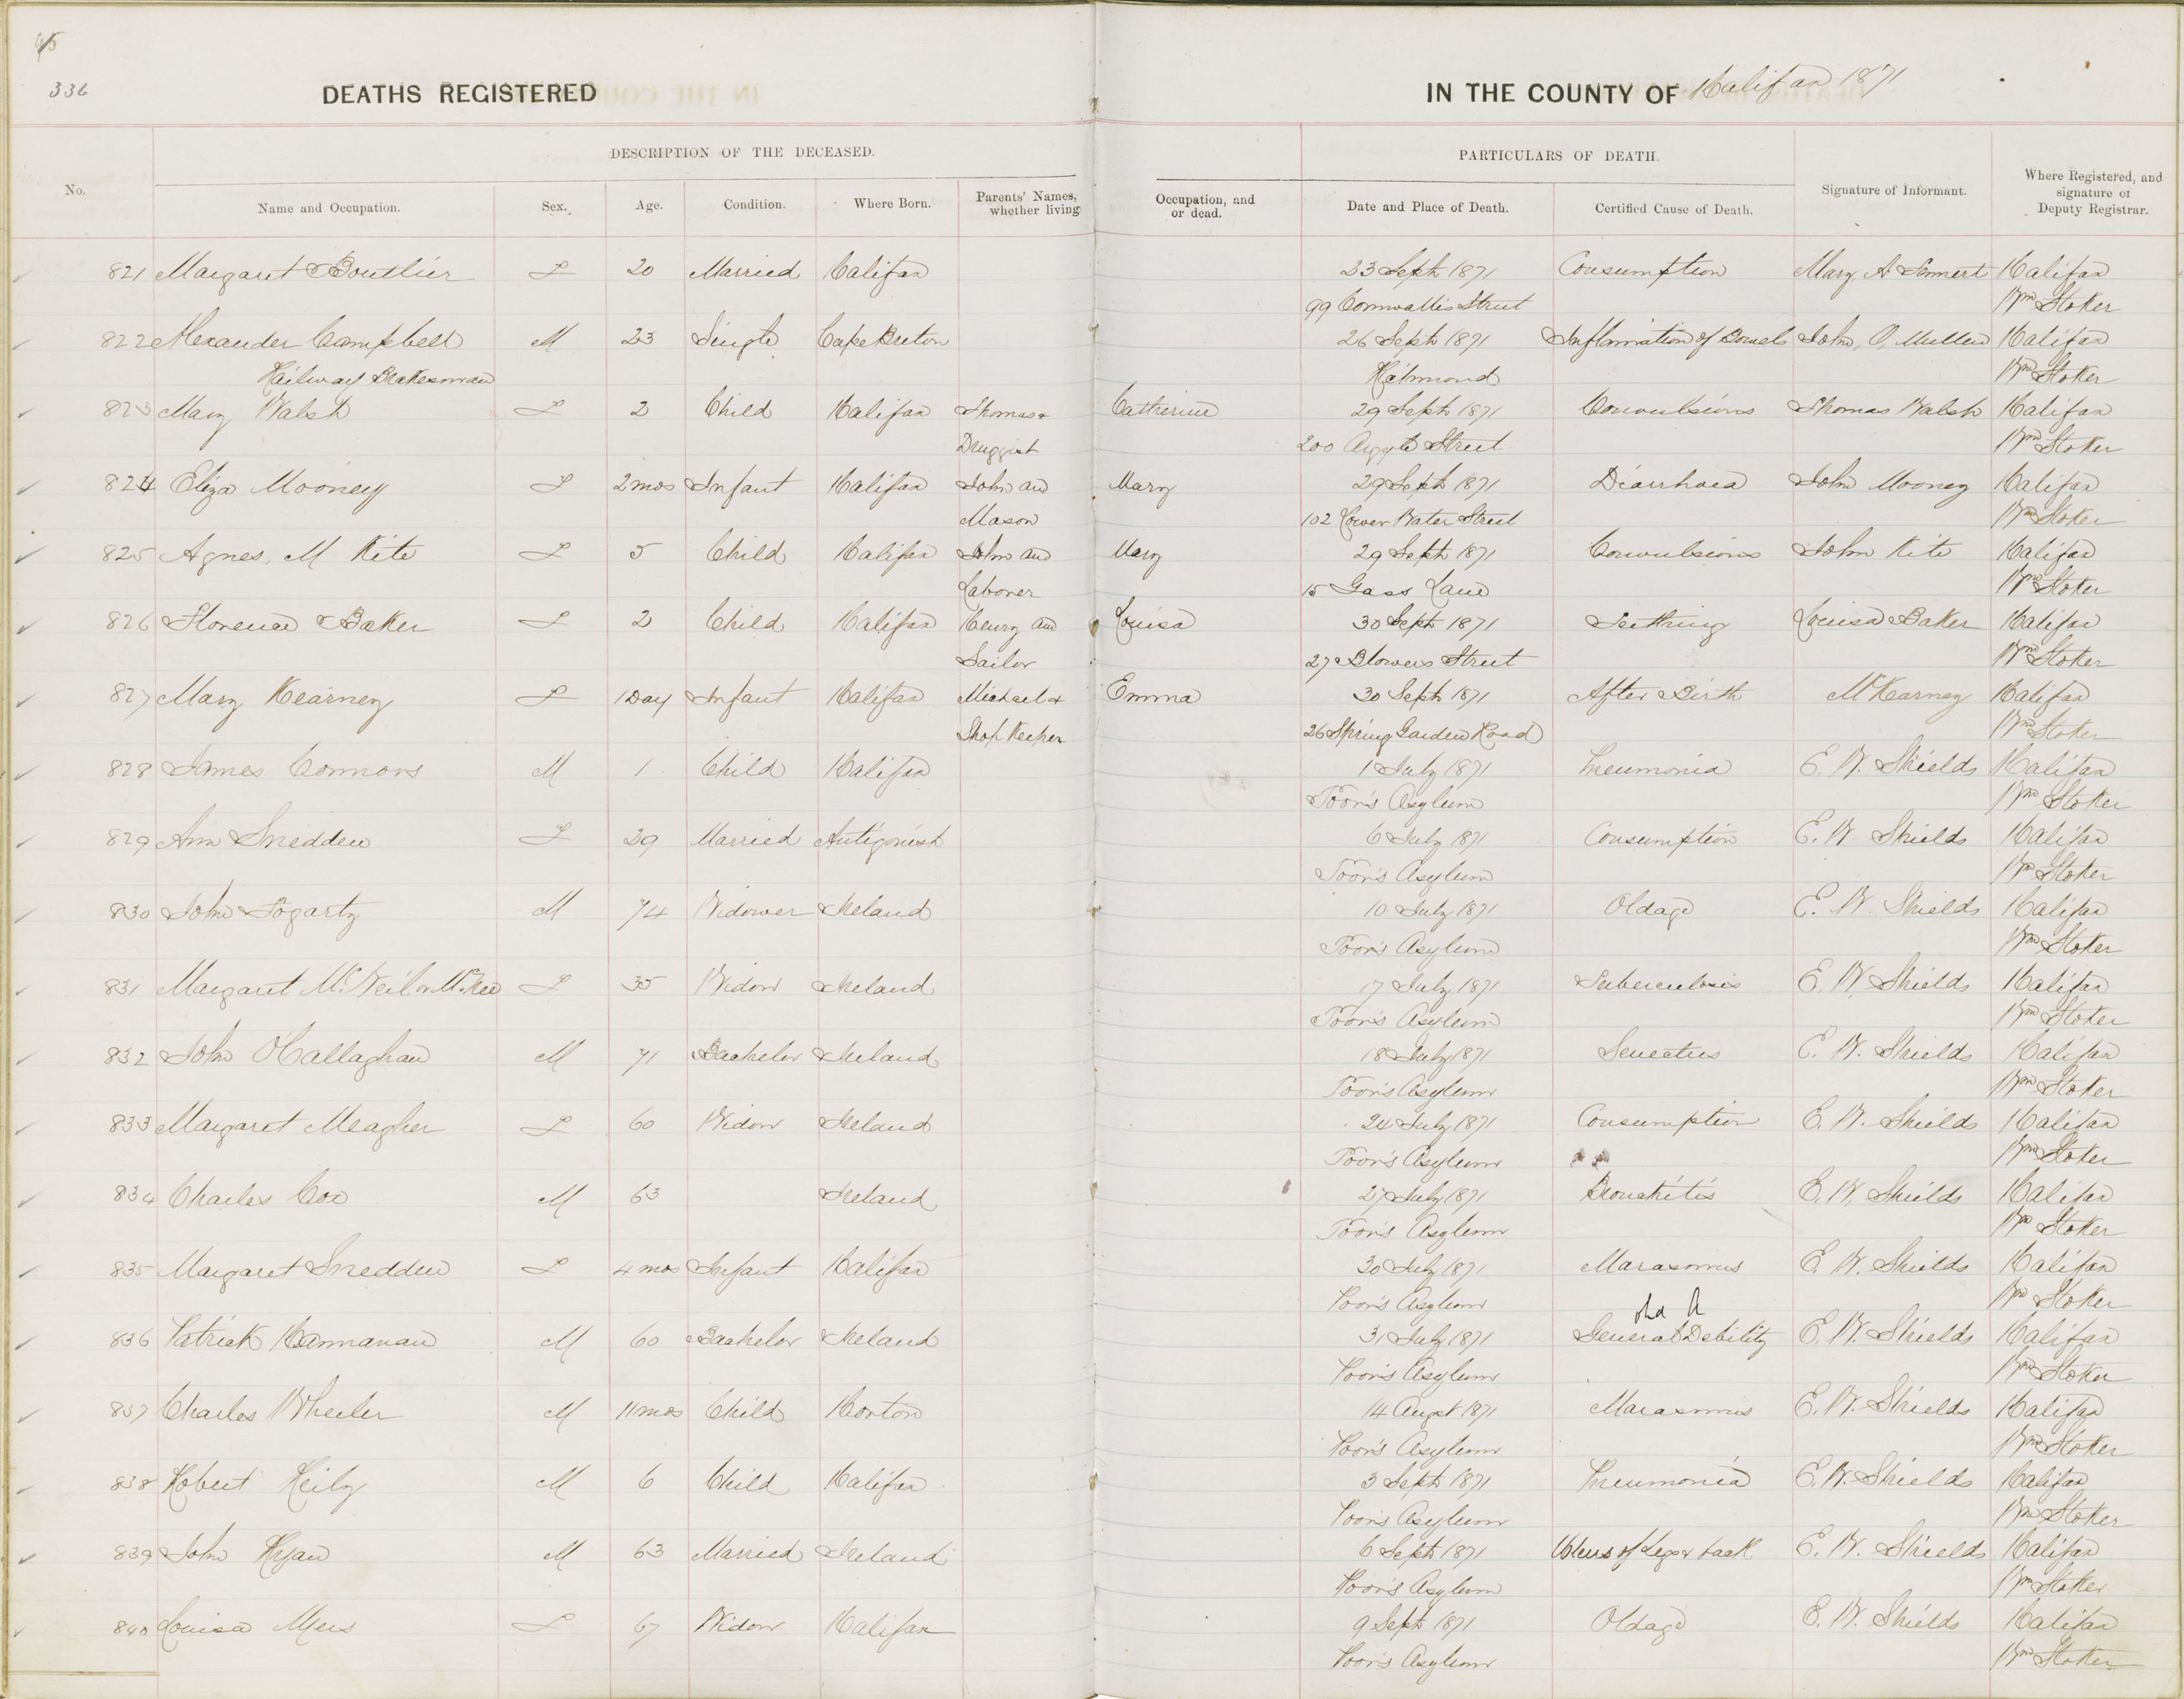 336
DEATHS REGISTERED IN THE COUNTY OF Halifax 1871
DESCRIPTION OF THE DECEASED. PARTICULARS OF DEATH.
No. Name and Occupation. Sex. Age. Condition. Where Born. Parents' Names, whether living Occupation, and or dead. Date and Place of Death. Certified Cause of Death. Signature of Informant. Where Registered, and signature of Deputy Registrar.
821 Margaret Boutlier F 20 Married Halifax 23 Sept 1871 Consumption Mary A Halifax
99 Cornwallis Street Wm Stoker
822 Alexander Campbell M 23 Single Cape Breton 26 Sept 1871 Inflamation of Bowels John O Mullen Halifax
Railway Brakesman Richmond Wm Stoker
823 Mary Walsh F 2 Child Halifax Thomas & Catherine 29 Sept 1871 Convulsions Thomas Walsh Halifax
Druggist 200 Argyle Street Wm Stoker
824 Eliza Mooney F 2 mos Infant Halifax John and Mary 29 Sept 1871 Diarrhoea John Mooney Halifax
Mason 102 Lower Water Street Wm Stoker
825 Agnes. M Kite F 5 Child Halifax John and Mary 29 Sept 1871 Convulsions John Kite Halifax
Laborer 15 Gass Lane Wm Stoker
826 Florence Baker F 2 Child Halifax Henry and Louisa 30 Sept 1871 Teething Louisa Baker Halifax
Sailor 27 Blowers Street Wm Stoker
827 Mary Kearney F 1 Day Infant Halifax Michael & Emma 30 Sept 1871 After Birth M Kearney Halifax
Shop Keeper 26 Spring Garden Road Wm Stoker
828 James Connors M 1 Child Halifax 1 July 1871 Pneumonia E. W. Shields Halifax
Poor's Asylum Wm Stoker
829 Ann Snedden F 29 Married Antigonish 6 July 1871 Consumption E. W. Shields Halifax
Poor's Asylum Wm Stoker
830 John Fogarty M 74 Widower Ireland 10 July 1871 Oldage E. W. Shields Halifax
Poor's Asylum Wm Stoker
831 Margaret McNeil or McKee F 35 Widow Ireland 17 July 1871 Tuberculosis E. W. Shields Halifax
Poor's Asylum Wm Stoker
832 John O'Callaghan M 71 Bachelor Ireland 18 July 1871 Senectus E. W. Shields Halifax
Poor's Asylum Wm Stoker
833 Margaret Meagher F 60 Widow Ireland 24 July 1871 Consumption E. W. Shields Halifax
Poor's Asylum Wm Stoker
834 Charles Cox M 63 Ireland 27 July 1871 Bronchitis E. W. Shields Halifax
Poor's Asylum Wm Stoker
835 Margaret Snedden F 4 mos Infant Halifax 30 July 1871 Marasmus E. W. Shields Halifax
Poor's Asylum Wm Stoker
836 Patrick Hannanan M 60 Bachelor Ireland 31 July 1871 General Debility E. W. Shields Halifax
Poor's Asylum Wm Stoker
837 Charles Wheeler M 11 mos Child Horton 14 Augst 1871 Marasmus E. W. Shields Halifax
Poor's Asylum Wm Stoker
838 Robert Keily M 6 Child Halifax 3 Sept 1871 Pneumonia E. W. Shields Halifax
Poor's Asylum Wm Stoker
839 John Ryan M 63 Married Ireland 6 Sept 1871 Ulcers of Legs & back E. W. Shields Halifax
Poor's Asylum Wm Stoker
840 Louisa F 67 Widow Halifax 9 Sept 1871 Oldage E. W. Shields Halifax
Poor's Asylum Wm Stoker